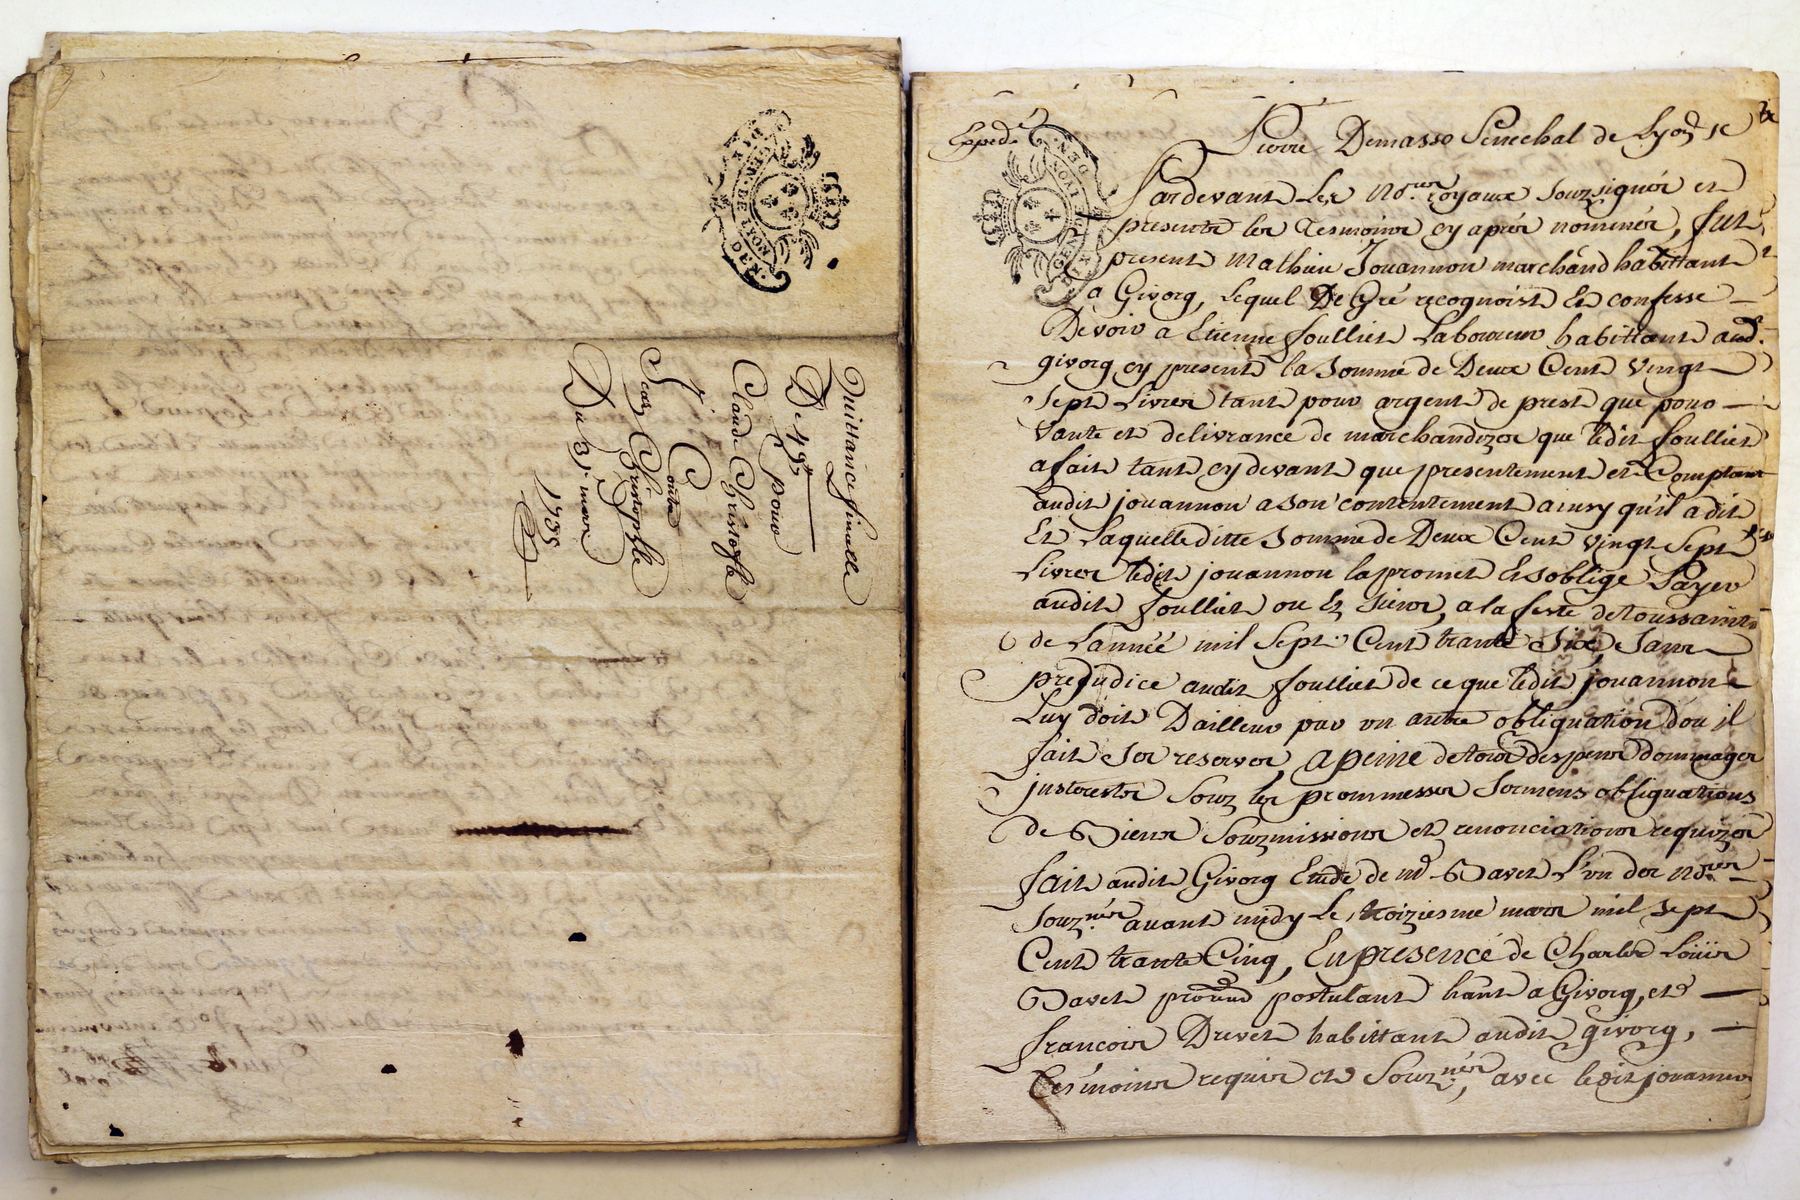 Quittance finalle
De 49ᵗᵗ
pour
Claude Christophle
Contre
Jean Christophle
Du 3ᵉ mars
1735
GEN. DE LYON
DEN.
Expedᵉ
GEN. DE LYON
DEN.
Pierre Demasso Senechal de Lyon
Pardevant Les Noʳᵉˢ royaux souzsignés et
presents les Tesmoins cy aprés nommés, fut
present Mathieu Jouannon marchand habittant
a Givorg, Lequel De Gré recognoist Et confesse
Devoir a Etienne foulliet Laboureur habittant aud.
givorg cy present la somme de Deux Cent Vingt
sept Livres tant pour argent de prest que pour
Vante et delivrance de marchandizes que ledit foulliet
a fait tant cy devant que presentement et Comptant
audit jouannon a son contentement ainsy qu'il a dit
Et Laquelle ditte somme de Deux Cent vingt sept
Livres ledit jouannon la promet Et s'oblige Payer
audit foulliet ou Es siens, a la feste de Toussaints
de L'année mil sept Cent trante Six, sans
prejudice audit foulliet de ce que ledit jouannon
Luy doit D'ailleur par un autre obliguation dou il
fait ses reserves, a peine de tous despens dommages
justerestes souz les prommesses sermens obliguations
de Biens souzmissions et renonciations requizes
fait audit Givorg Etude de Mᵉ Bavet L'un des Noʳᵉˢ
souzⁿᵉˢ avant midy Le troiziesme mars mil sept
Cent trante Cinq, En presence de Charles Loüis
Bavet postulant habᵗ a Givorg, et
francois Drevet habittant audit givorg,
Tesmoins requis et Souzⁿᵉˢ, avec ledit jouannon